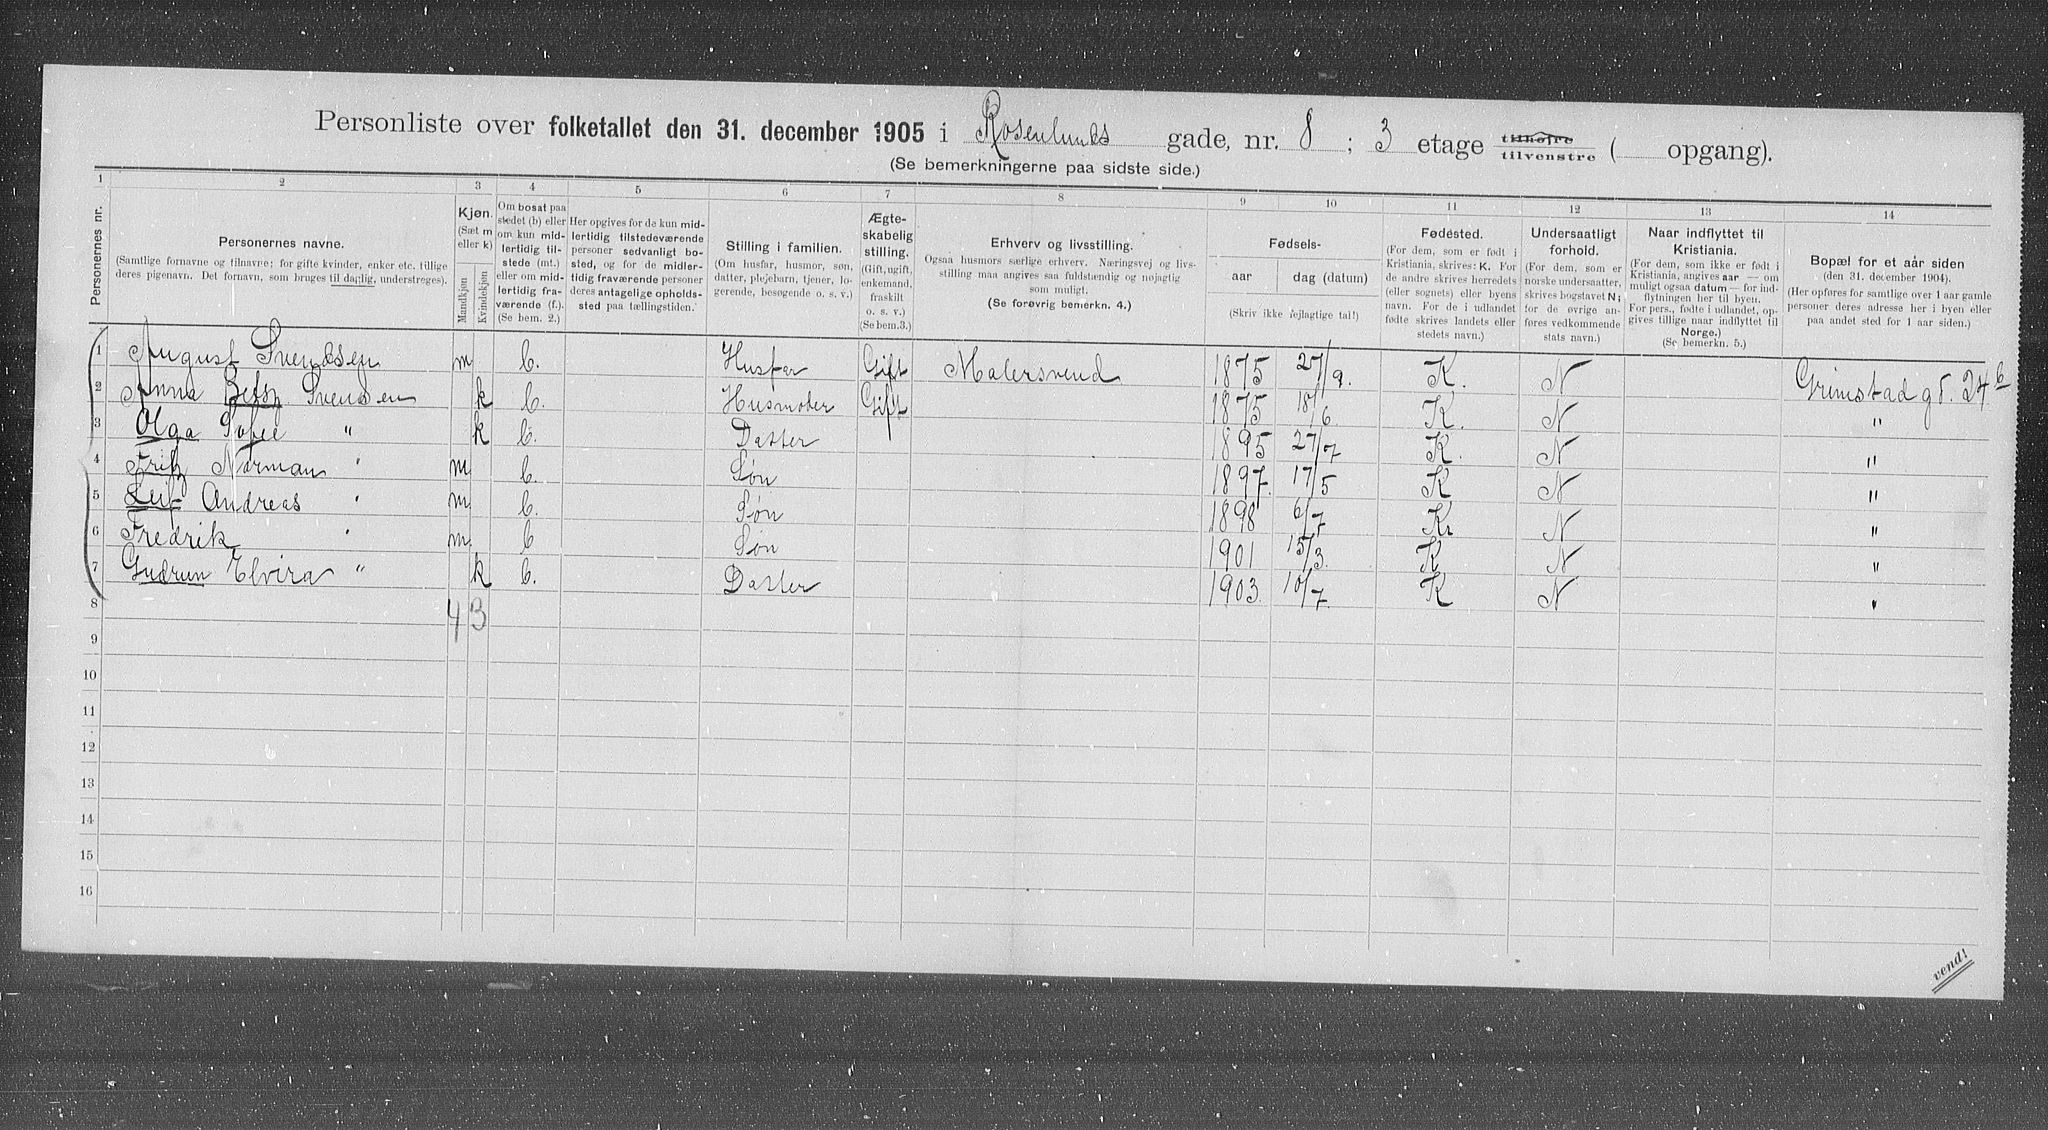 Personliste over folketallet den 31. december 1905 i Rosenlunds gade, nr. 8 ; 3 etage tilhøjre tilvenstre ( opgang).
(Se bemerkningerne paa sidste side.)
1 2 3 4 5 6 7 8 9 10 11 12 13 14
Personernes nr.
Personernes navne.
(Samtlige fornavne og tilnavne; for gifte kvinder, enker etc. tillige
deres pigenavn. Det fornavn, som bruges til daglig, understreges).
Kjøn.
(Sæt m
eller k)
Mandkjøn
Kvindekjøn
Om bosat paa
stedet (b) eller
om kun mid-
lertidig til-
stede (mt.)
eller om mid-
lertidig fra-
værende (f.).
(Se bem. 2.)
Her opgives for de kun mid-
lertidig tilstedeværende
personer sedvanligt bo-
sted, og for de midler-
tidig fraværende personer
deres antagelige opholds-
sted paa tællingstiden.
Stilling i familien.
(Om husfar, husmor, søn,
datter, plejebarn, tjener, lo-
gerende, besøgende o. s. v.)
Ægte-
skabelig
stilling.
(Gift, ugift,
enkemand,
fraskilt
o. s. v.)
(Se bem.3.)
Erhverv og livsstilling.
Ogsaa husmors særlige erhverv. Næringsvej og livs-
stilling maa angives saa fuldstændig og nøjagtig
som muligt.
(Se forøvrig bemerkn. 4.)
Fødsels-
aar dag (datum)
(Skriv ikke fejlagtige tal!)
Fødested.
(For dem, som er født i
Kristiania, skrives: K. For
de andre skrives herredets
(eller sognets) eller byens
navn. For de i udlandet
fødte skrives landets eller
stedets navn.)
Undersaatligt
forhold.
(For dem, som er
norske undersaatter,
skrives bogstavet N;
for de øvrige an-
føres vedkommende
stats navn.)
Naar indflyttet til
Kristiania.
(For dem, som ikke er født i
Kristiania, angives aar — om
muligt ogsaa datum — for ind-
flytningen her til byen.
For pers., fødte i udlandet, op-
gives tillige naar indflyttet til
Norge.)
(Se bemerkn. 5.)
Bopæl for et aar siden
(den 31. december 1904).
(Her opføres for samtlige over 1 aar gamle
personer deres adresse her i byen eller
paa andet sted for 1 aar siden.)
1 August Svendsen m b. Husfar Gift Malersvend 1875 27/9. K. N Grimstad gd. 24 b
2 Anna Betsy Svendsen k b. Husmoder Gift 1875 18/6. K. N "
3 Olga Sofie " k b. Datter 1895 27/7 K. N "
4 Fritz Norman " m b. Søn 1897. 17/5 K N "
5 Leif Andreas " m b. Søn 1898 6/7 Kr N "
6 Fredrik " m b Søn 1901 15/3. K N "
7 Gudrun Elvira " k b. Datter 1903. 10/7. K N "
8 4 3
9
10
11
12
13
14
15
16
vend!